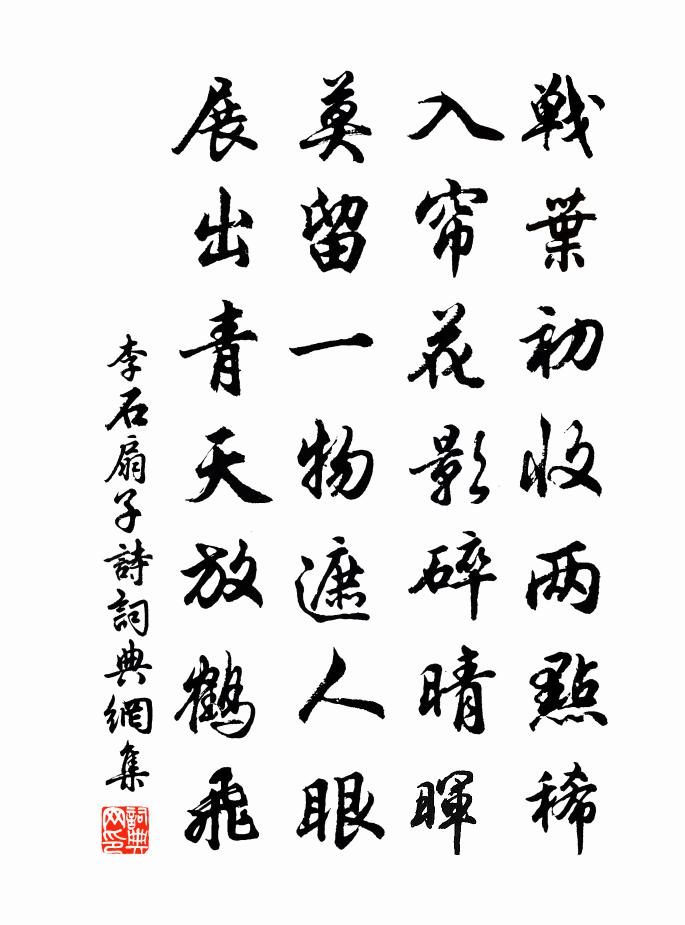 戦葉初收两點稀
入帘花影碎晴暉
莫留一物遮人眼
展出青天放鶴飛
李石扇子詩詞典網集
詞典网印